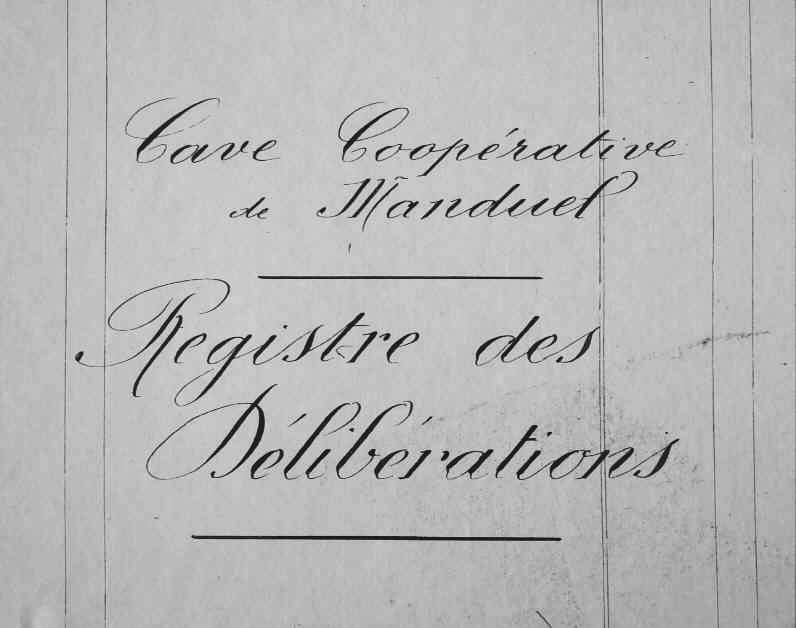 Cave Coopérative
de Manduel
Registre des
Délibérations